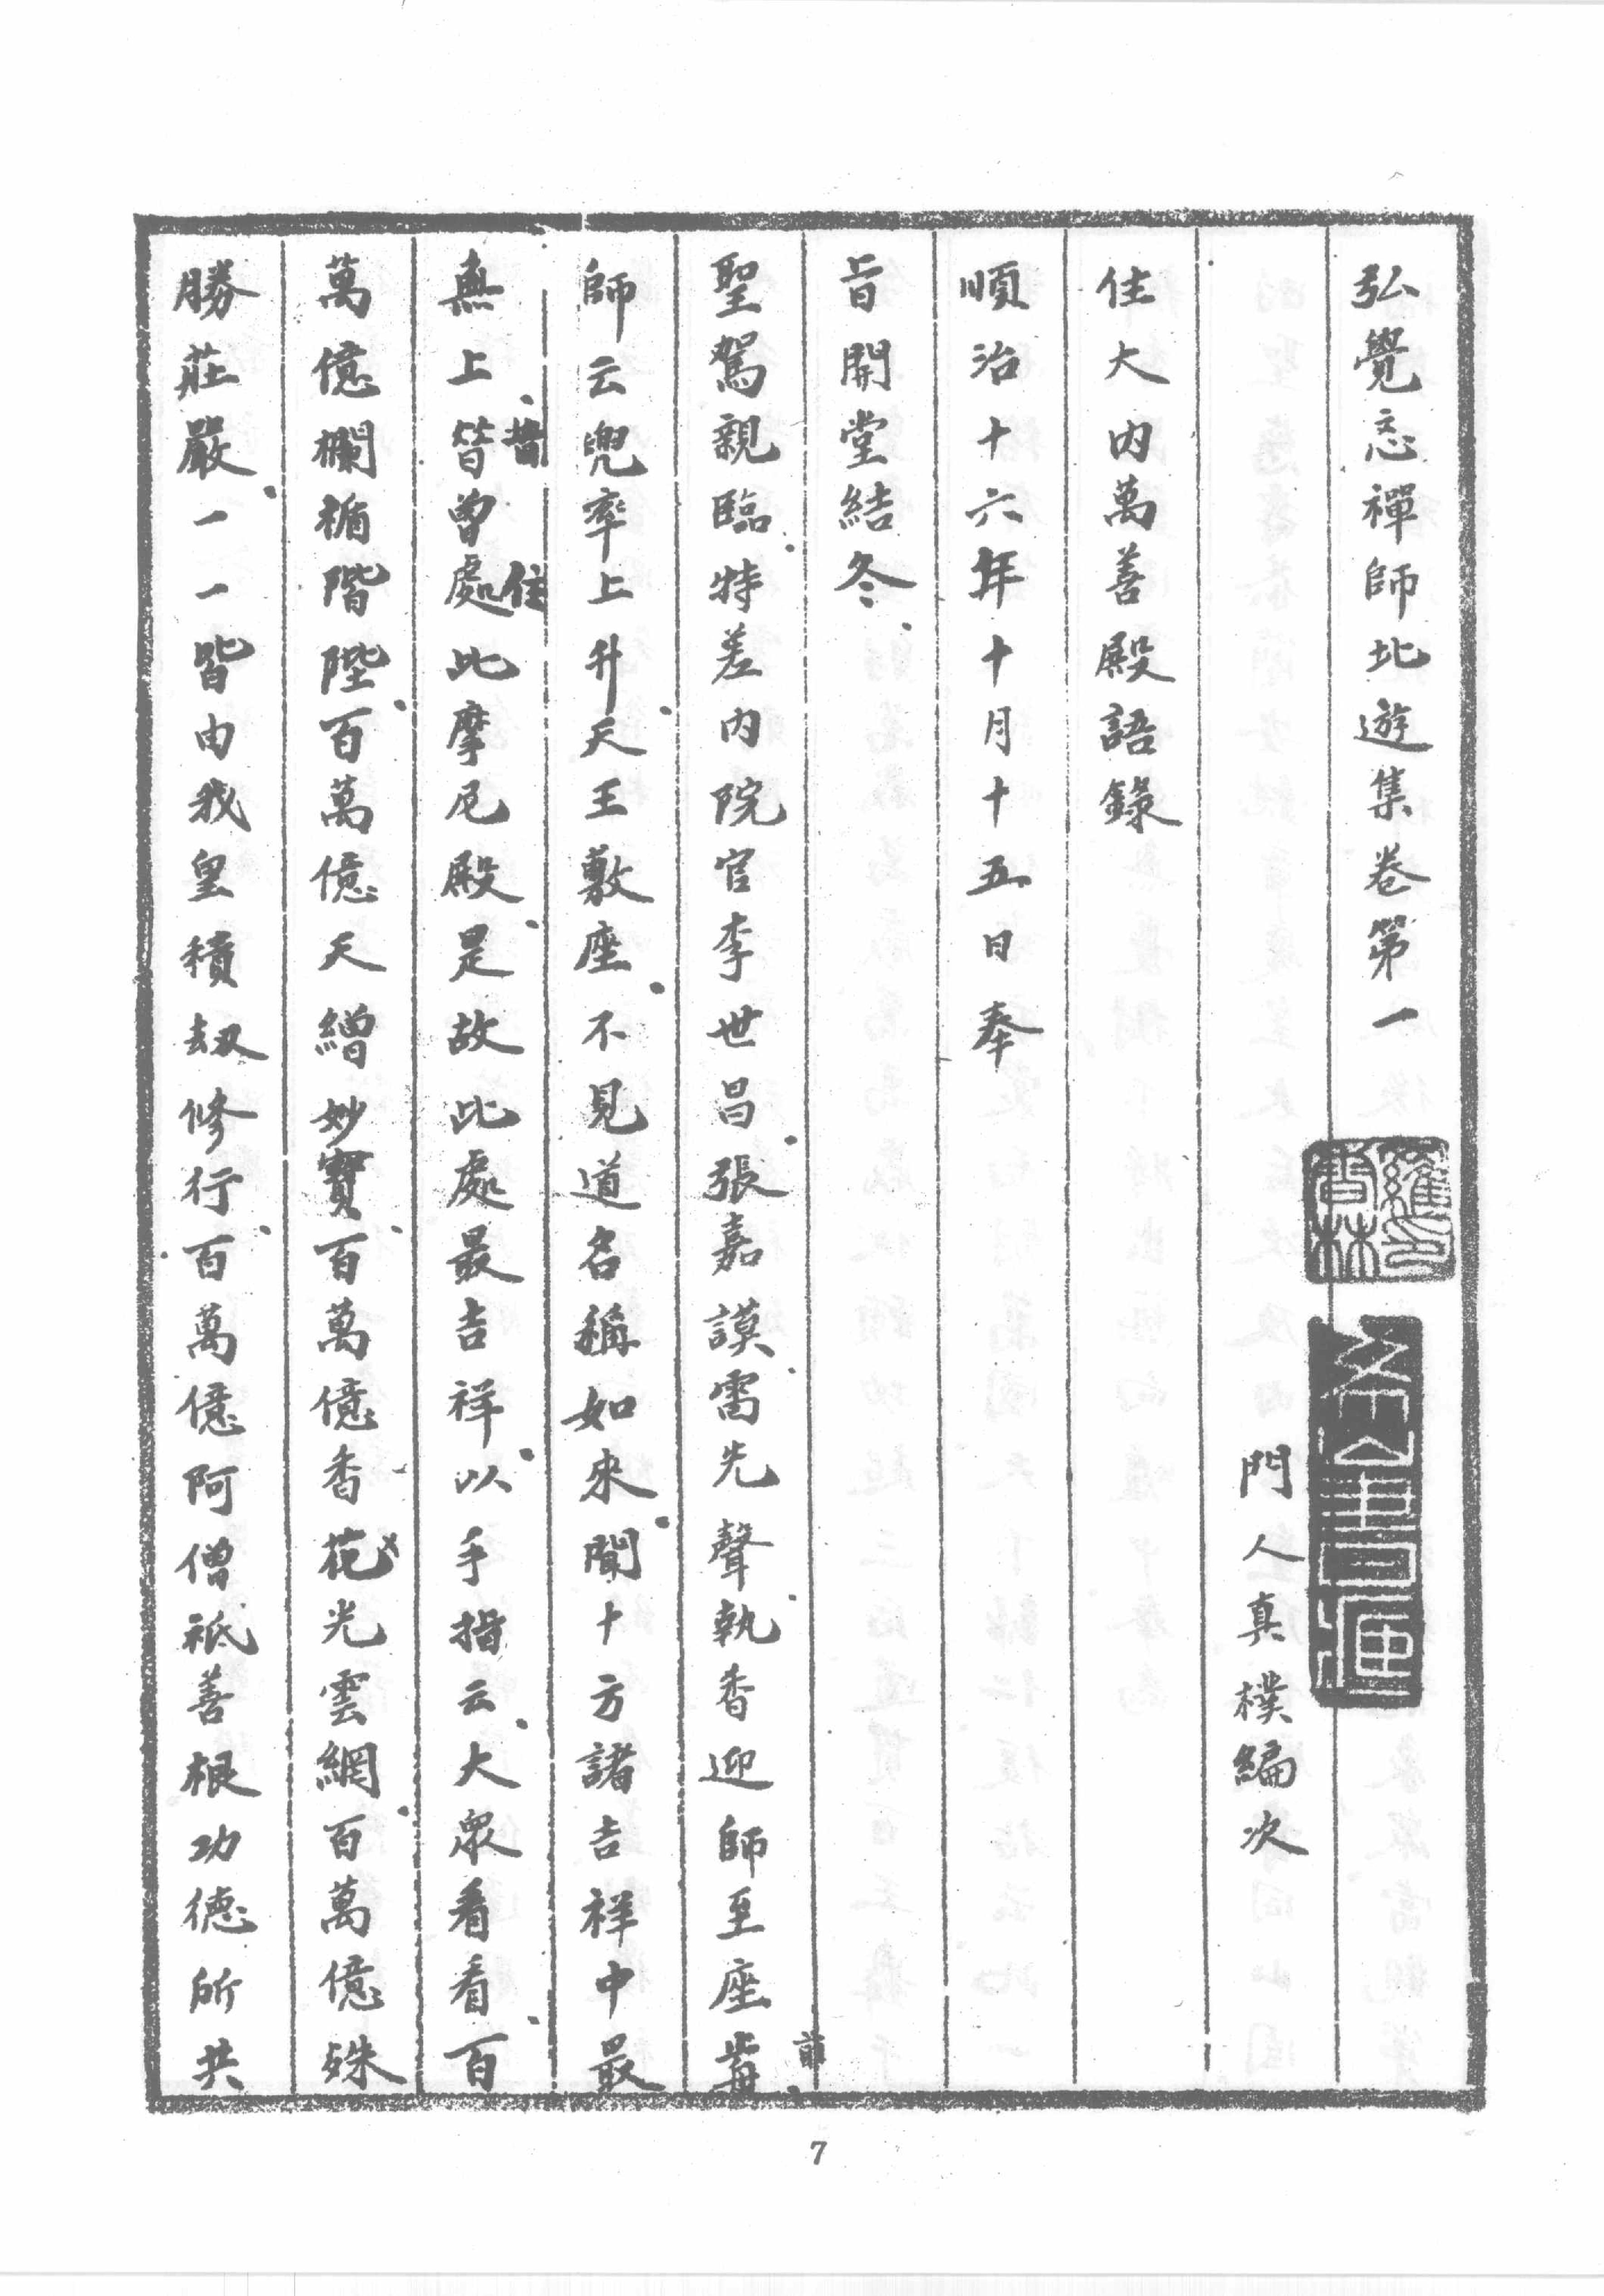 弘覺忞禪師北遊集卷第一
門人真樸編次
住大內萬善殿語錄
順治十六年十月十五日奉
旨開堂結冬
聖駕親臨特差內院官李世昌張嘉謨雷先聲執香迎師至座前
師云兜率上升天王敷座不見道名稱如來聞十方諸吉祥中最
無上昔曾處住此摩尼殿是故此處最吉祥以手指云大衆看看百
萬億欄楯階陛百萬億天繒妙寶百萬億香花光雲網百萬億殊
勝莊嚴一一皆由我皇積劫修行百萬億阿僧祇善根功德所共
7